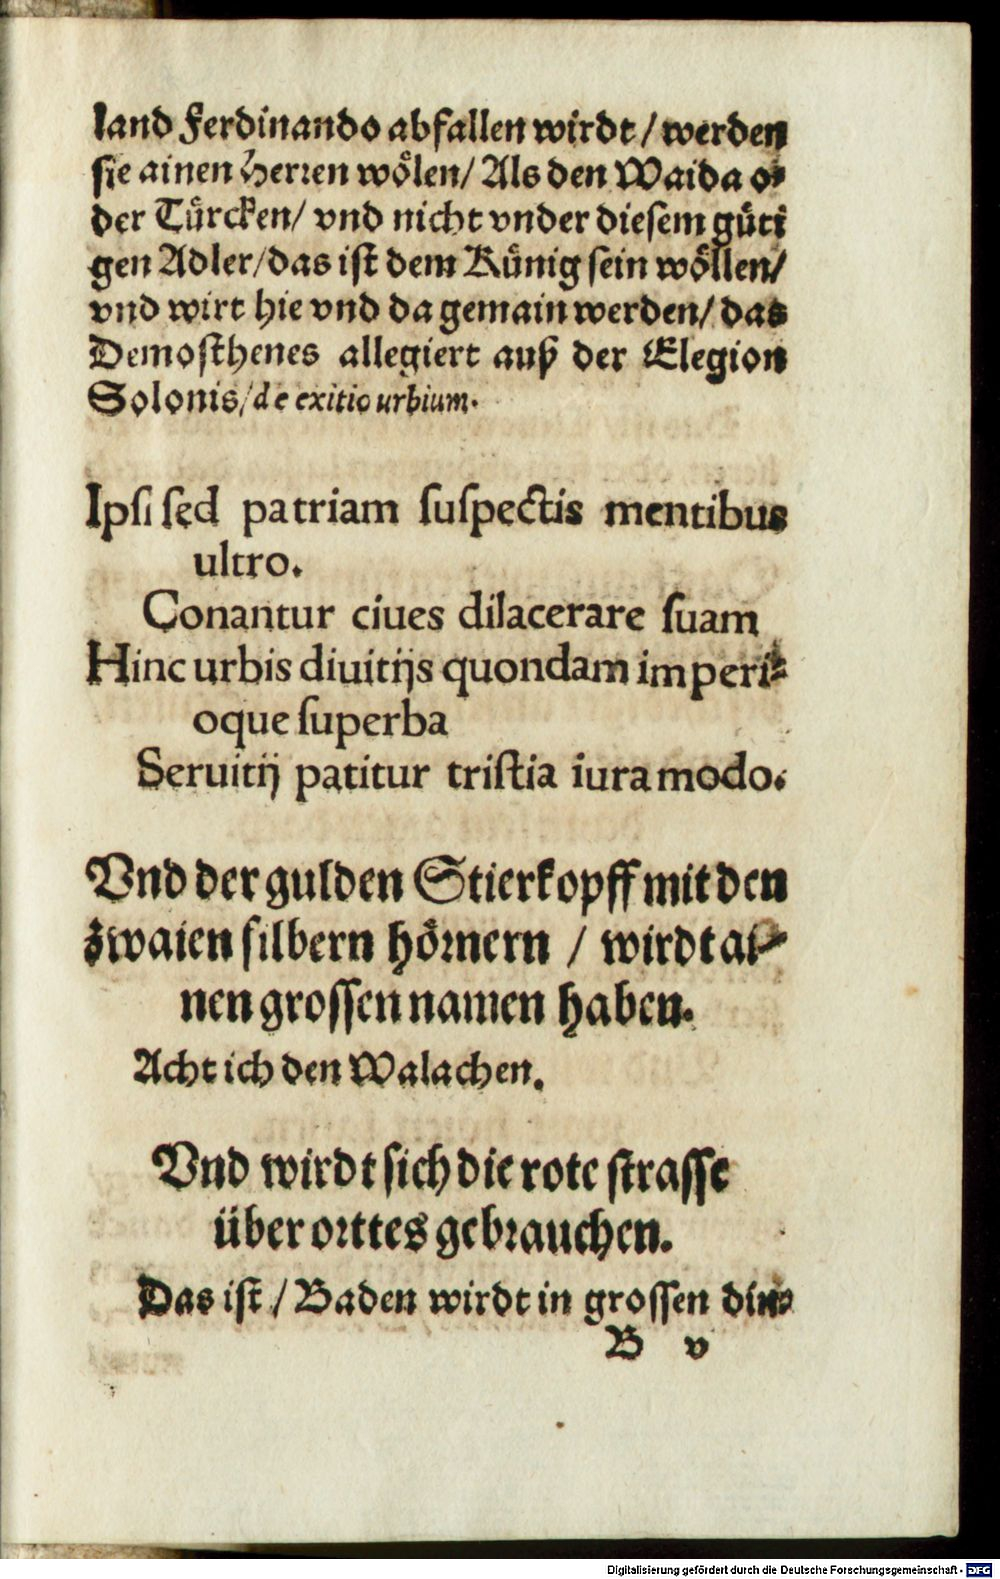 land Ferdinando abfallen wirdt / werden
sie ainen Herren woͤlen / Als den Waida o⸗
der Tuͤrcken / vnd nicht vnder diesem guͤti
gen Adler / das ist dem Kuͤnig sein woͤllen /
vnd wirt hie vnd da gemain werden / das
Demosthenes allegiert auß der Elegion
Solonis / de exitio urbium.
Ipsi sed patriam suspectis mentibus
ultro.
Conantur ciues dilacerare suam
Hinc urbis diuitijs quondam imperi⸗
oque superba
Seruitij patitur tristia iura modo.
Vnd der gulden Stierkopff mit den
zwaien silbern hoͤrnern / wirdt ai⸗
nen grossen namen haben.
Acht ich den Walachen.
Vnd wirdt sich die rote strasse
über orttes gebrauchen.
Das ist / Baden wirdt in grossen din⸗
B v
Digitalisierung gefördert durch die Deutsche Forschungsgemeinschaft - DFG